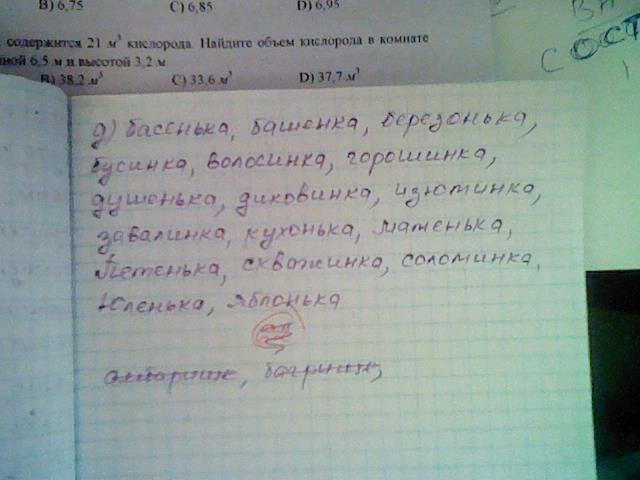 B) 6,75 C) 6,85 D) 6,95
содержится 21 м³ кислорода. Найдите объем кислорода в комнате
ной 6,5 м и высотой 3,2 м
B) 38,2 м³ C) 33,6 м³ D) 37,7 м³
СОСТ
д) басенька, башенка, берёзонька,
бусинка, волосинка, горошинка,
душенька, диковинка, изюминка,
завалинка, кухонька, маменька,
Петенька, скважинка, соломинка,
Юленька, яблонька